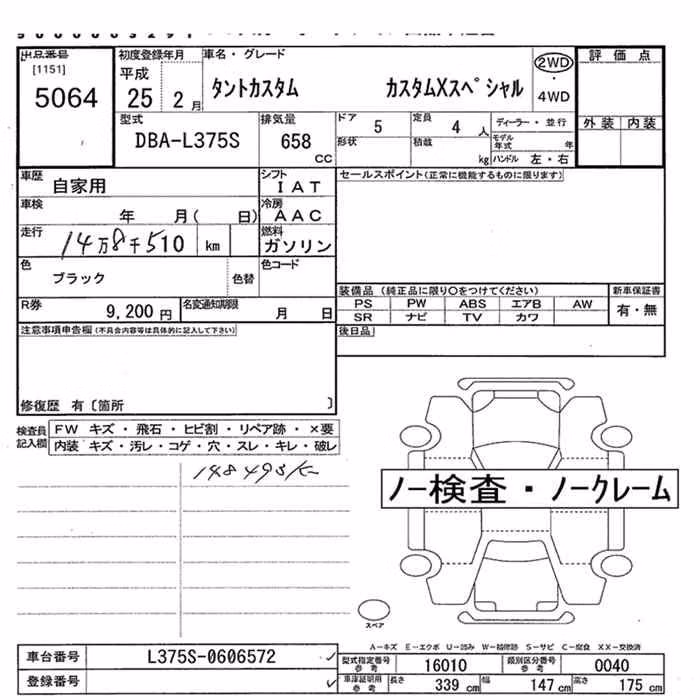 出品番号
[1151]
5064
初度登録年月
平成
25 2 月
車名・グレード
タントカスタム カスタムXスペシャル
2WD
・
4WD
評価点
外装 内装
型式
DBA-L375S
排気量
658
CC
ドア
5
定員
4 人
形状
積載
kg
ディーラー・並行
モデル年式 年
ハンドル 左・右
車歴
自家用
シフト
IAT
車検
年 月( 日)
冷房
AAC
走行
14万8千510 km
燃料
ガソリン
色
ブラック
色替
色コード
R券
9,200 円
名変通知期限
月 日
セールスポイント(正常に機能するものに限ります)
装備品 (純正品に限り〇をつけてください)
PS PW ABS エアB AW
SR ナビ TV カワ
新車保証書
有・無
後日品
注意事項申告欄(不具合内容等は具体的に記入して下さい)
修復歴 有〔箇所 〕
検査員記入欄
FW キズ・飛石・ヒビ割・リペア跡・×要
内装 キズ・汚レ・コゲ・穴・スレ・キレ・破レ
148493K
ノー検査・ノークレーム
スペア
A-キズ E-エクボ U-凹み W-補修跡 S-サビ C-腐食 XX-交換済
車台番号 L375S-0606572
登録番号
型式指定番号参考 16010
類別区分番号参考 0040
車庫証明用参考
長さ 339 cm 幅 147 cm 高さ 175 cm